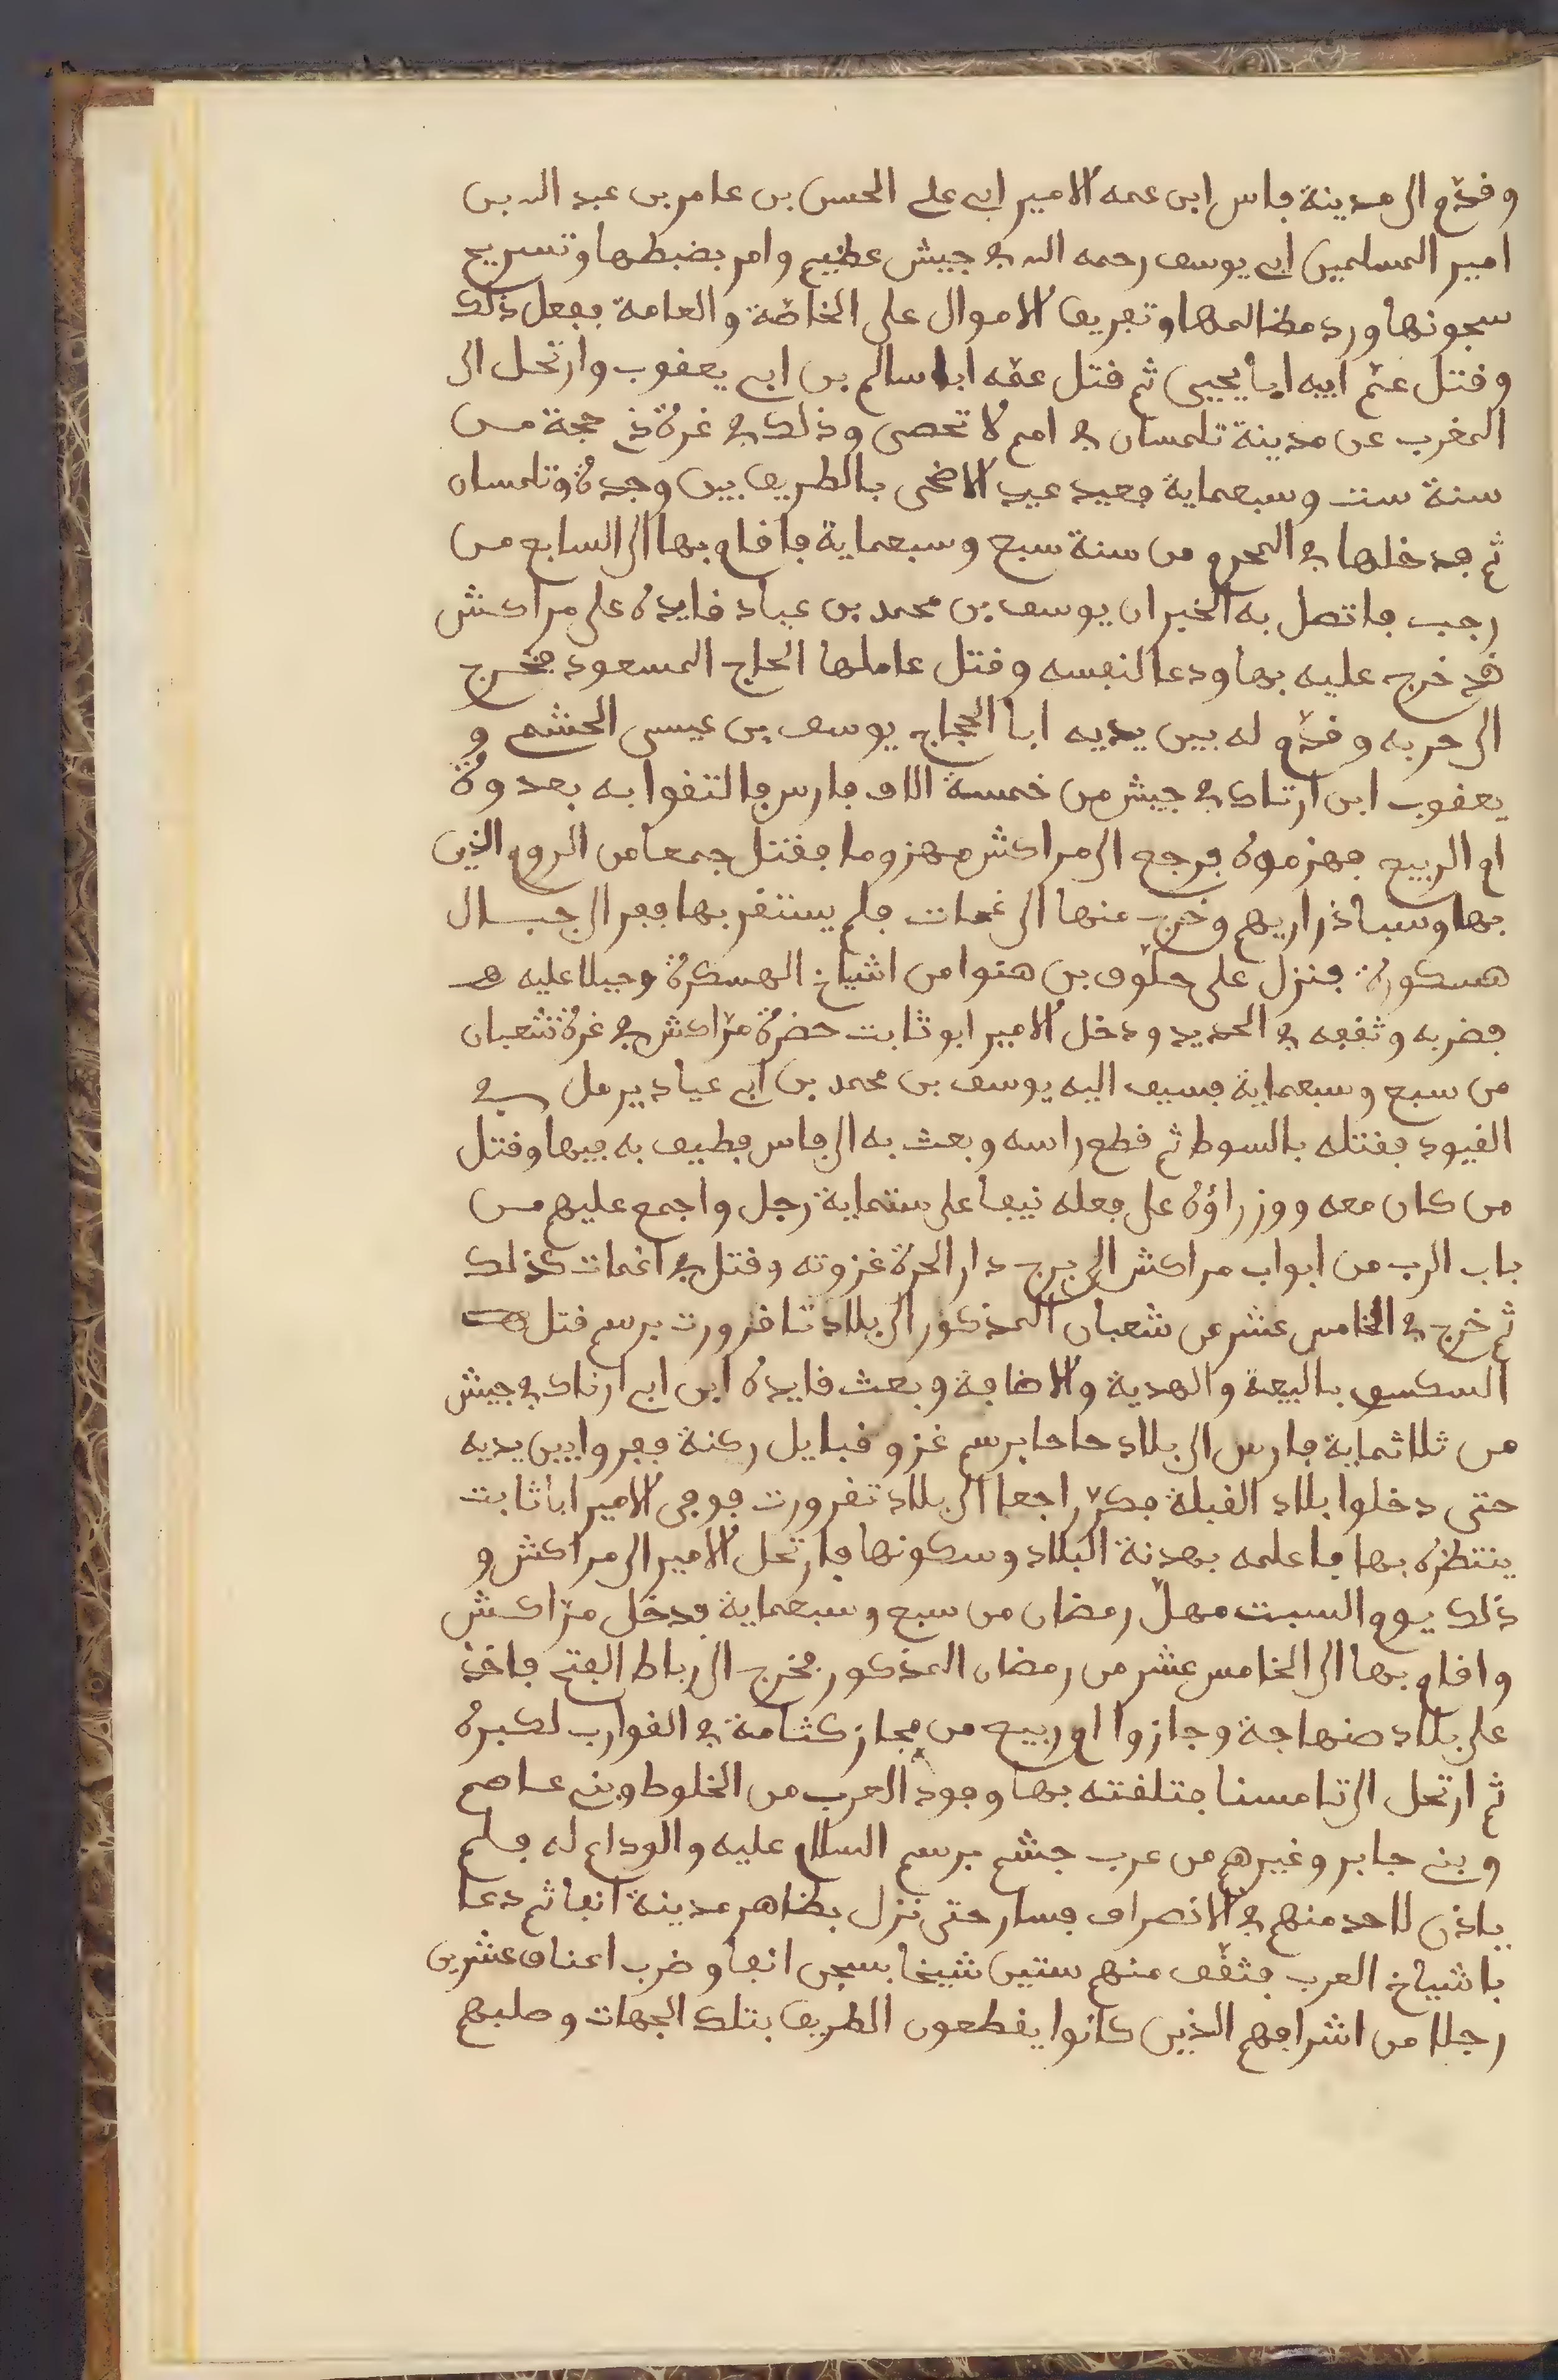 وقدّم الى مدينة فاس ابن عمه الامير ابي علي الحسن بن عامر بن عبد الله بن
امير المسلمين ابي يوسف رحمه الله في جيش عظيم وامر بضبطها وتسريح
سجونها ورد مظالمها وتفريق الاموال على الخاصّة والعامة ففعل ذلك
وقتل عمّ ابيه ابا يحيى ثم قتل عمّه ابا سالم بن ابي يعقوب وارتحل الى
المغرب عن مدينة تلمسان في امم لا تحصى وذلك في غرة ذي حجة من
سنة ست وسبعماية فعيد عيد الاضحى بالطريق بين وجدة وتلمسان
ثم فدخلها في المحرم من سنة سبع وسبعماية فاقام بها الى السابع من
رجب فاتصل به الخبر ان يوسف بن محمد بن عياد قايده على مراكش
قد خرج عليه بها ودعا لنفسه وقتل عاملها الحاج المسعود فخرج
الى حربه وقدّم له بين يديه ابا الحجاج يوسف بن عيسى الحشم و
يعقوب ابن ارتاد في جيش من خمسة الاف فارس فالتقوا به بعدوة
ام الربيع فهزموه فرجع الى مراكش مهزوما فقتل جمعا من الروم الذين
بها وسبا ذراريهم وخرج منها الى غمات فلم يستقر بها ففر الى جبال
هسكورة فنزل على حلّوف بن هنوا من اشياخ الهسكرة وحيلا عليه
فضربه وثقفه في الحديد ودخل الامير ابو ثابت حضرة مرّاكش في غرة شعبان
من سبع وسبعماية فسيق اليه يوسف بن محمد بن ابي عياد يرمل في
القيود فقتله بالسوط ثم قطع راسه وبعث به الى فاس فطيف به فيها وقتل
من كان معه ووزراؤه على فعله نيفا على ستماية رجل واجمع عليهم من
باب الرب من ابواب مراكش الى برج دار الحرة غزوته وقتل في اغمات كذلك
ثم خرج في الخامس عشر من شعبان المذكور الى بلاد تافرورت برسم قتل
السكسوي بالبيعة والهدية والاضافة وبعث قايده ابن ابي ارتاد في جيش
من ثلاثماية فارس الى بلاد حاحا برسم غزو قبايل ركنة ففروا بين يديه
حتى دخلوا بلاد القبلة فكرّ راجعا الى بلاد تفرورت فوجى الامير ابا ثابت
ينتظره بها فاعلمه بهدنة البلاد وسكونها فارتحل الامير الى مراكش و
ذلك يوم السبت مهلّ رمضان من سبع وسبعماية فدخل مرّاكش
واقام بها الى الخامس عشر من رمضان المذكور فخرج الى رباط الفتح فاخذ
على بلاد صنهاجة وجازوا ام ربيع من مجاز كثامة في القوارب لكبره
ثم ارتحل الى تامسنا فتلقته بها وفود العرب من الخلوط وبني عاصم
وبني جابر وغيرهم من عرب جشم برسم السلام عليه والوداع له فلم
ياذن لاحد منهم في الانصراف فسار حتى نزل بظاهر مدينة انفا ثم دعا
باشياخ العرب فثقّف منهم ستين شيخا بسجن انفا وضرب اعناق عشرين
رجلا من اشرافهم الذين كانوا يقطعون الطريق بتلك الجهات وصلبهم